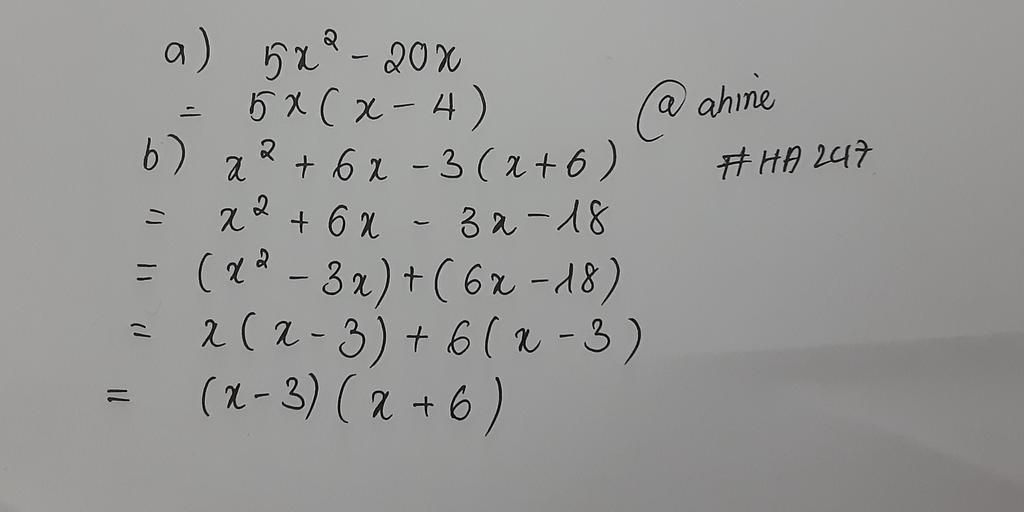 a) 5x² - 20x
= 5x(x - 4)
@ahine
#HA247
b) x² + 6x - 3(x+6)
= x² + 6x - 3x - 18
= (x² - 3x) + (6x - 18)
= x(x - 3) + 6(x - 3)
= (x - 3)(x + 6)